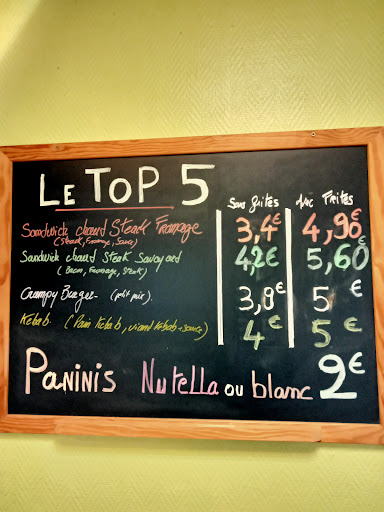 LE TOP 5
Sans frites Avec Frites
Sandwich chaud Steak Fromage 3,4€ 4,90€
(Steak, Fromage, Sauce)
Sandwich chaud Steak Savoyard 4,2€ 5,60€
(Bacon, Fromage, Steak)
Crampy Burger (petit prix) 3,8€ 5€
Kebab (Pain Kebab, viand kebab + sauce) 4€ 5€
PANINIS Nutella ou blanc 2€